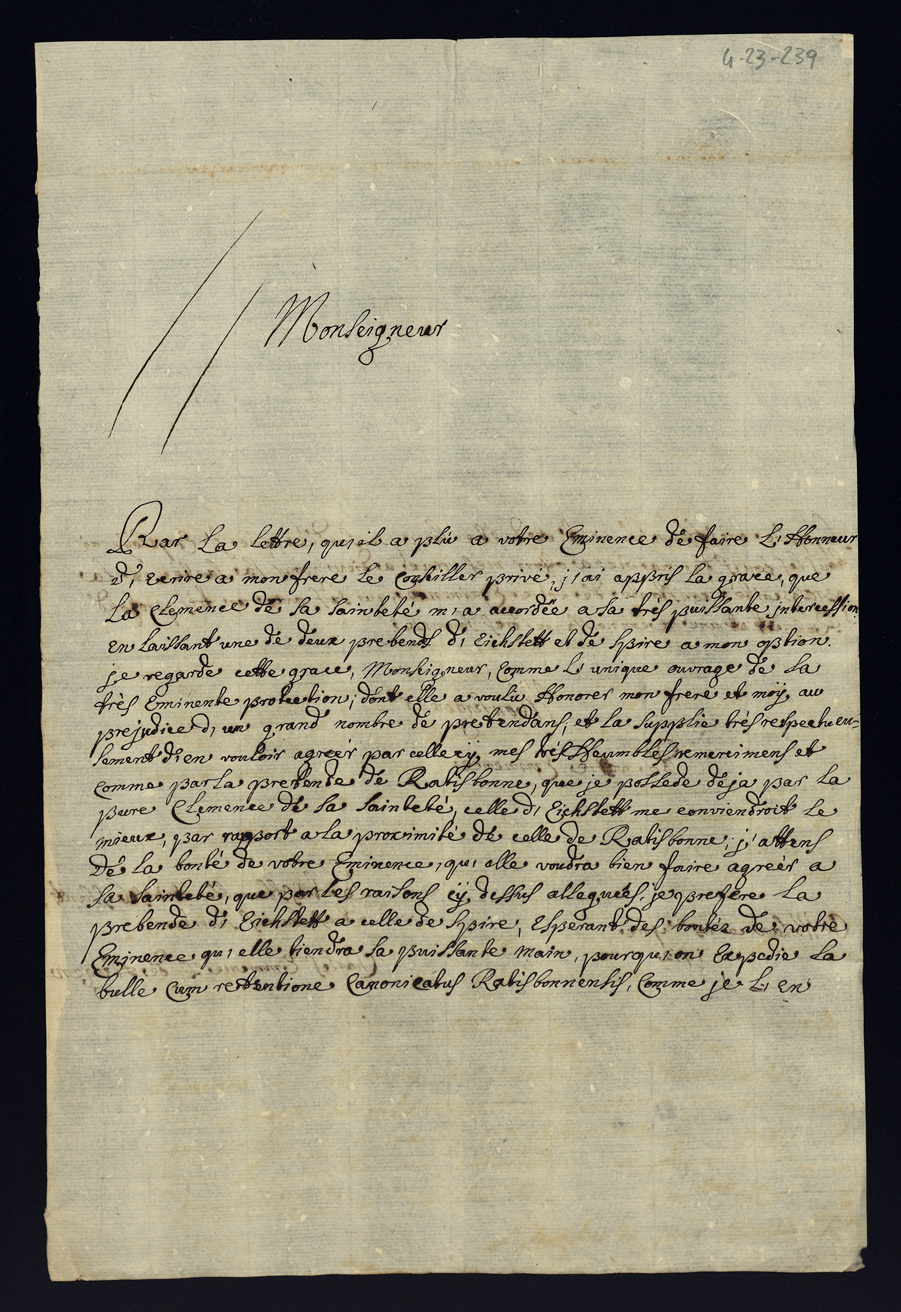 4-23-239
Monseigneur
Par La lettre, qu'il a plû a votre Eminence de faire L'Honneur
d'ecrire a mon frere Le Conseiller privé, j'ai appris La grace, que
La Clemence de sa sainteté m'a accordée a sa très puissante intercession
en Laissant une de deux prebends d'Eichstett et de Spire a mon option.
je regarde cette grace, Monseigneur, Comme L'unique ouvrage de La
très Eminente protection, dont elle a voulu Honorer mon frere et moÿ, au
prejudice d'un grand nombre de pretendans, et La supplie très respectueu-
sement d'en vouloir agreer par celle cÿ mes très Heumbles remercimens et
Comme par La prebende de Ratisbonne, que je possede deja par La
pure Clemence de sa sainteté, celle d'Eichstett me conviendroit Le
mieux, par rapport a La proximité de celle de Ratisbonne, j'attens
De La bonté de votre Eminence, qu'elle voudra bien faire agreèr a
sa sainteté, que par Les raisons cÿ dessus alleguées, je prefere La
prebende d'Eichstett a celle de Spire, Esperant des bontéz de votre
Eminence qu'elle tiendra sa puissante main, pourqu'on Expedie La
bulle Cum retentione Canonicatus Ratisbonnensis, Comme je L'en